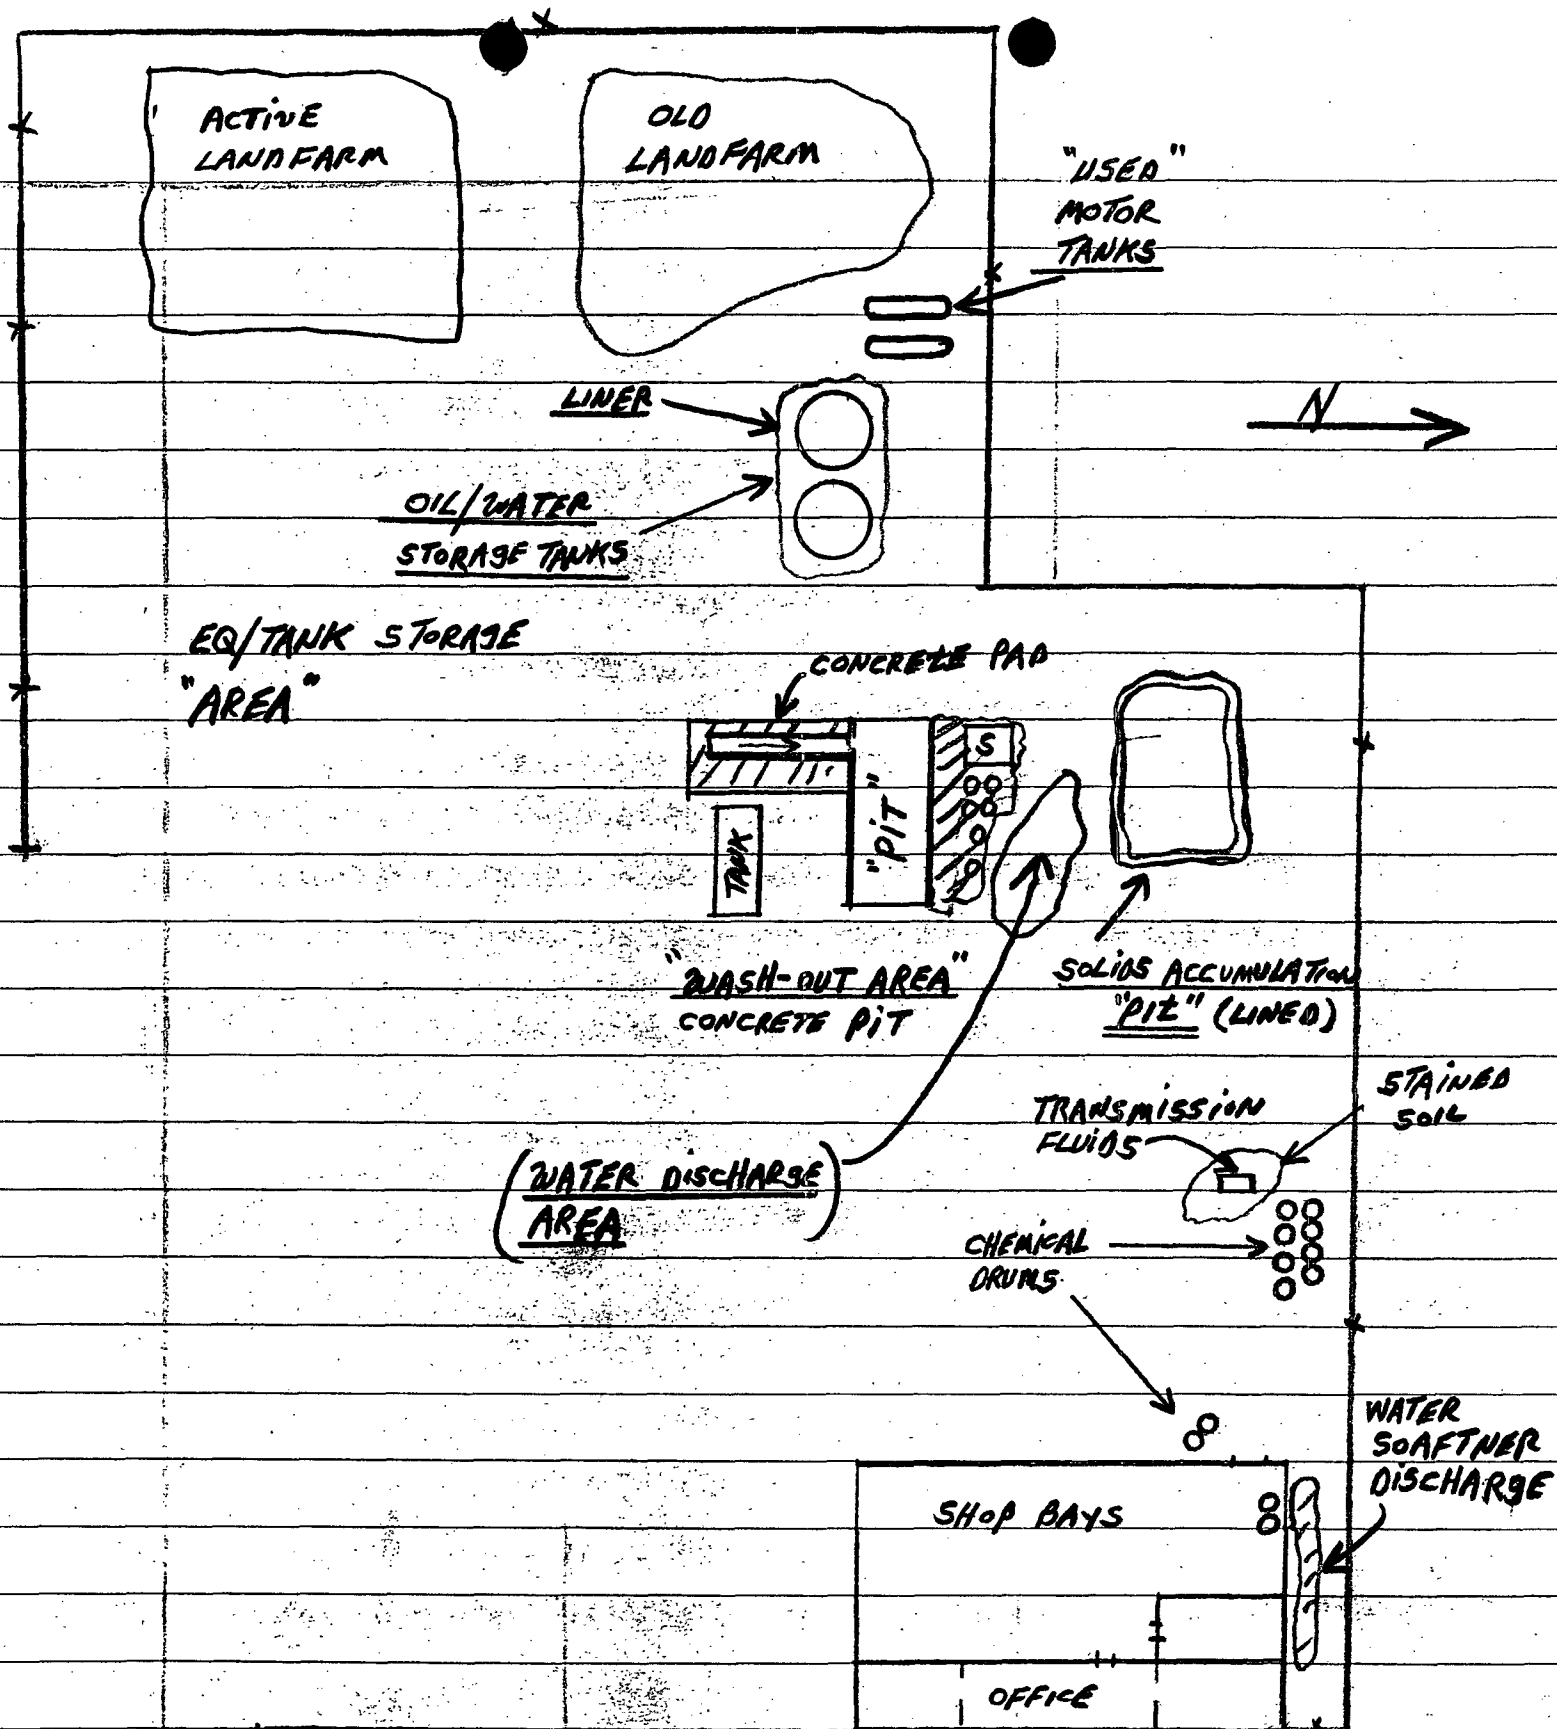 ACTIVE
LANDFARM
OLD
LANDFARM
"USED"
MOTOR
TANKS
LINER
N
OIL/WATER
STORAGE TANKS
EQ/TANK STORAGE
"AREA"
CONCRETE PAD
S
"PIT"
TANK
"WASH-OUT AREA"
CONCRETE PIT
SOLIDS ACCUMULATION
"PIT" (LINED)
STAINED
SOIL
TRANSMISSION
FLUIDS
(WATER DISCHARGE
AREA)
CHEMICAL
DRUMS
WATER
SOAFTNER
DISCHARGE
SHOP BAYS
OFFICE